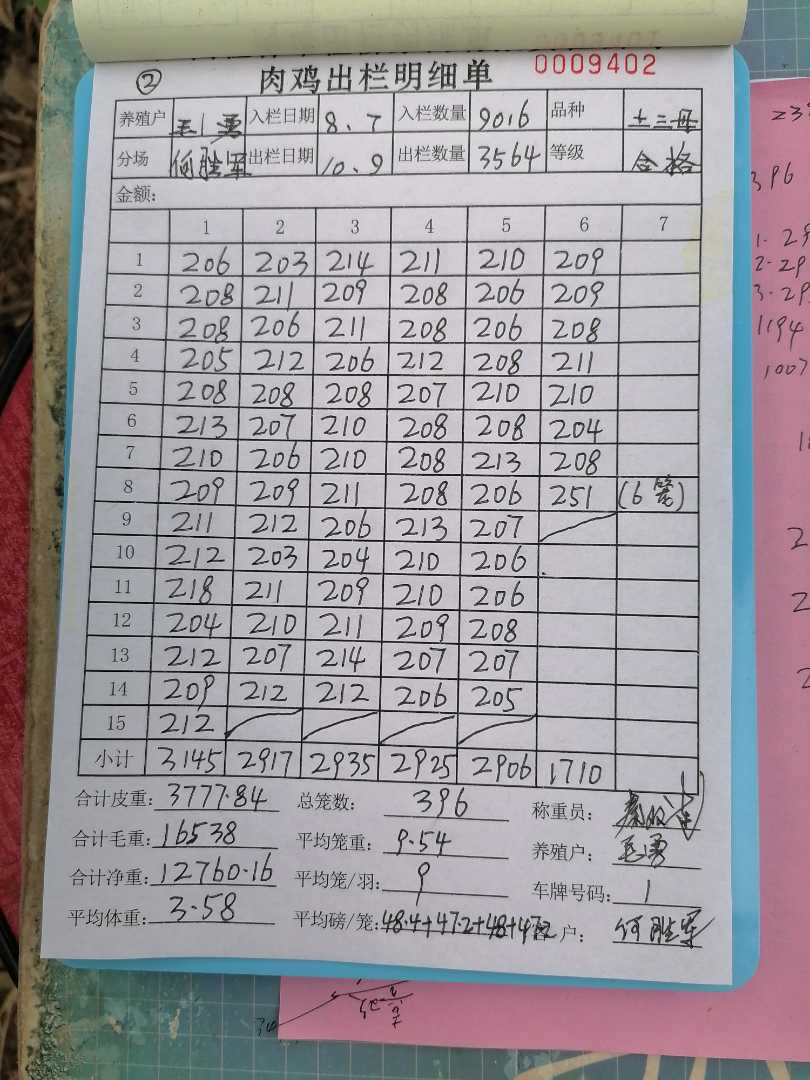 ② 肉鸡出栏明细单 0009402
养殖户 毛勇 入栏日期 8.7 入栏数量 9016 品种 土三母
分场 何胜军 出栏日期 10.9 出栏数量 3564 等级 合格
金额:
1 2 3 4 5 6 7
1 206 203 214 211 210 209
2 208 211 209 208 206 209
3 208 206 211 208 206 208
4 205 212 206 212 208 211
5 208 208 208 207 210 210
6 213 207 210 208 208 204
7 210 206 210 208 213 208
8 209 209 211 208 206 251 (6笼)
9 211 212 206 213 207
10 212 203 204 210 206
11 218 211 209 210 206
12 204 210 211 209 208
13 212 207 214 207 207
14 209 212 212 206 205
15 212
小计 3145 2917 2935 2925 2906 1710
合计皮重: 3777.84 总笼数: 396 称重员:
合计毛重: 16538 平均笼重: 9.54 养殖户: 毛勇
合计净重: 12760.16 平均笼/羽: 9 车牌号码: 1
平均体重: 3.58 平均磅/笼: 48.4+47.2+48+47.2 户: 何胜军
396
1194
1007